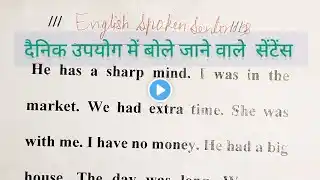 /// English Spoken Sentences
दैनिक उपयोग में बोले जाने वाले सेंटेंस
He has a sharp mind. I was in the
market. We had extra time. She was
with me. I have no money. He had a big
house. The day was long. W